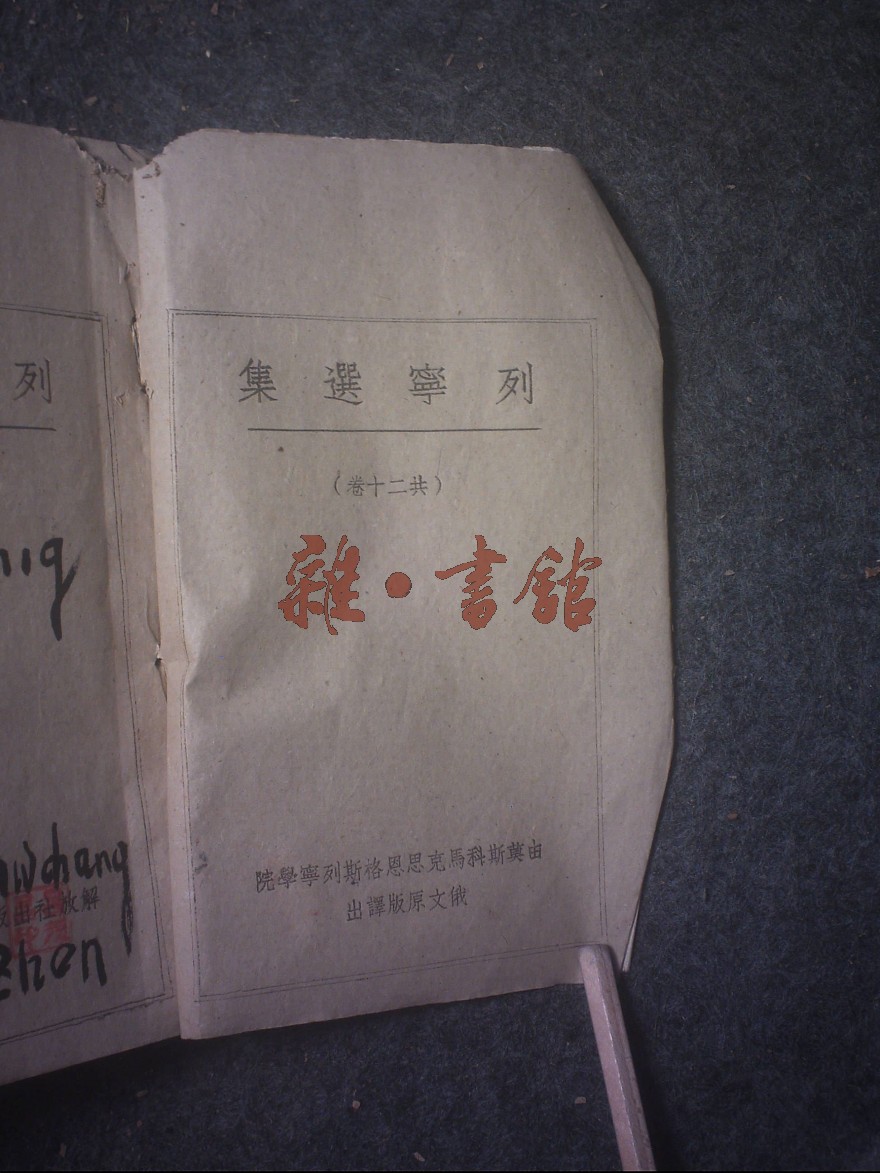 列寧選集
（共二十卷）
雜·書館
由莫斯科馬克思恩格斯列寧學院
俄文原版譯出
列
解放社出版